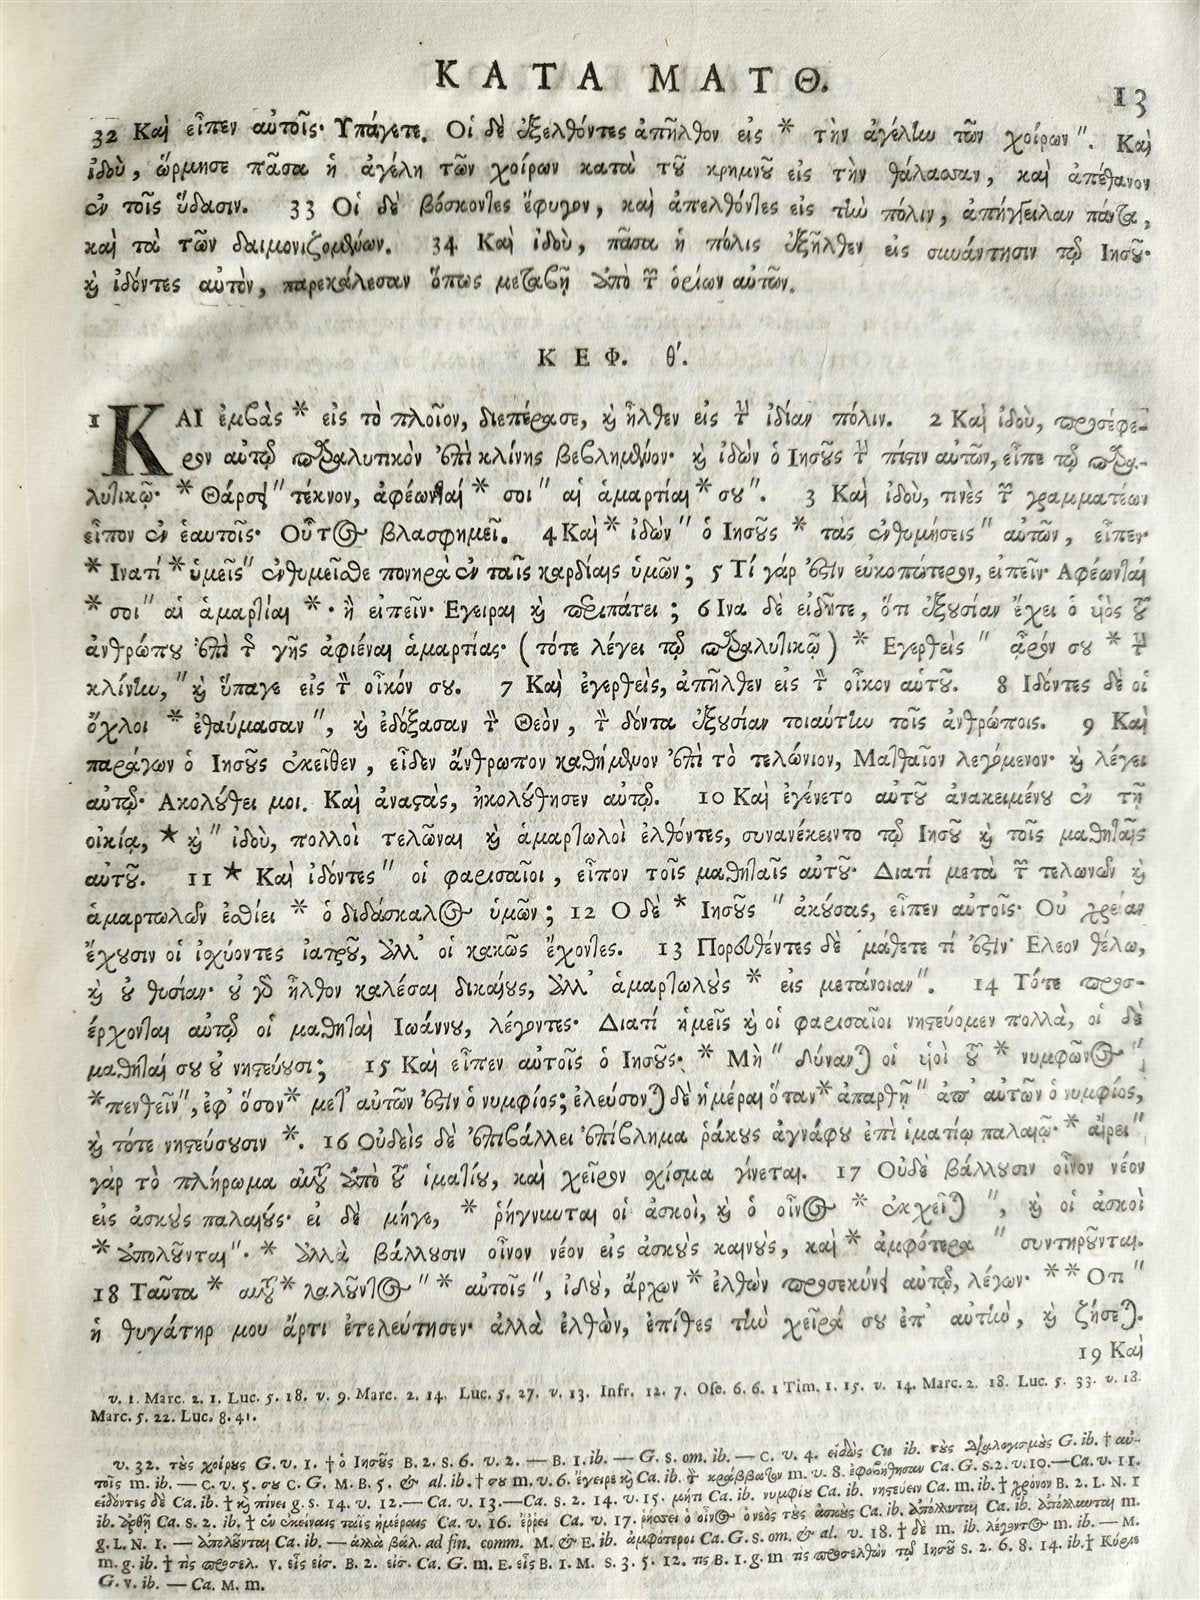 ΚΑΤΑ ΜΑΤΘ. 13
32 Καὶ εἶπεν αὐτοῖς· Ὑπάγετε. Οἱ δὲ ἐξελθόντες ἀπῆλθον εἰς * τὴν ἀγέλην τῶν χοίρων". Καὶ
ἰδοὺ, ὥρμησε πᾶσα ἡ ἀγέλη τῶν χοίρων κατὰ τοῦ κρημνοῦ εἰς τὴν θάλασσαν, καὶ ἀπέθανον
ἐν τοῖς ὕδασιν. 33 Οἱ δὲ βόσκοντες ἔφυγον, καὶ ἀπελθόντες εἰς τὴν πόλιν, ἀπήγγειλαν πάντα,
καὶ τὰ τῶν δαιμονιζομένων. 34 Καὶ ἰδοὺ, πᾶσα ἡ πόλις ἐξῆλθεν εἰς συνάντησιν τῷ Ιησοῦ·
καὶ ἰδόντες αὐτὸν, παρεκάλεσαν ὅπως μεταβῇ ἀπὸ τῶν ὁρίων αὐτῶν.
ΚΕΦ. θ´.
1 ΚΑΙ ἐμβὰς * εἰς τὸ πλοῖον, διεπέρασε, καὶ ἦλθεν εἰς τὴν ἰδίαν πόλιν. 2 Καὶ ἰδοὺ, προσέφε-
ρον αὐτῷ παραλυτικὸν ἐπὶ κλίνης βεβλημένον· καὶ ἰδὼν ὁ Ιησοῦς τὴν πίστιν αὐτῶν, εἶπε τῷ παρα-
λυτικῷ· * Θάρσει " τέκνον, ἀφέωνταί * σοι " αἱ ἁμαρτίαι * σου ". 3 Καὶ ἰδοὺ, τινὲς τῶν γραμματέων
εἶπον ἐν ἑαυτοῖς· Οὗτος βλασφημεῖ. 4 Καὶ * ἰδὼν " ὁ Ιησοῦς * τὰς ἐνθυμήσεις " αὐτῶν, εἶπεν·
* Ινατί * ὑμεῖς " ἐνθυμεῖσθε πονηρὰ ἐν ταῖς καρδίαις ὑμῶν; 5 Τί γάρ ἐστιν εὐκοπώτερον, εἰπεῖν· Αφέωνταί
* σοι " αἱ ἁμαρτίαι *· ἢ εἰπεῖν· Εγειραι καὶ περιπάτει; 6 Ινα δὲ εἰδῆτε, ὅτι ἐξουσίαν ἔχει ὁ υἱὸς τοῦ
ἀνθρώπου ἐπὶ τῆς γῆς ἀφιέναι ἁμαρτίας· (τότε λέγει τῷ παραλυτικῷ) * Εγερθεὶς " ἆρόν σου * τὴν
κλίνην, " καὶ ὕπαγε εἰς τὸν οἶκόν σου. 7 Καὶ ἐγερθεὶς, ἀπῆλθεν εἰς τὸν οἶκον αὑτοῦ. 8 Ιδόντες δὲ οἱ
ὄχλοι * ἐθαύμασαν ", καὶ ἐδόξασαν τὸν Θεὸν, τὸν δόντα ἐξουσίαν τοιαύτην τοῖς ἀνθρώποις. 9 Καὶ
παράγων ὁ Ιησοῦς ἐκεῖθεν, εἶδεν ἄνθρωπον καθήμενον ἐπὶ τὸ τελώνιον, Ματθαῖον λεγόμενον· καὶ λέγει
αὐτῷ· Ακολούθει μοι. Καὶ ἀναστὰς, ἠκολούθησεν αὐτῷ. 10 Καὶ ἐγένετο αὐτοῦ ἀνακειμένου ἐν τῇ
οἰκίᾳ, * καὶ " ἰδοὺ, πολλοὶ τελῶναι καὶ ἁμαρτωλοὶ ἐλθόντες, συνανέκειντο τῷ Ιησοῦ καὶ τοῖς μαθηταῖς
αὐτοῦ. 11 * Καὶ ἰδόντες " οἱ φαρισαῖοι, εἶπον τοῖς μαθηταῖς αὐτοῦ· Διατί μετὰ τῶν τελωνῶν καὶ
ἁμαρτωλῶν ἐσθίει * ὁ διδάσκαλος ὑμῶν; 12 Ο δὲ * Ιησοῦς " ἀκούσας, εἶπεν αὐτοῖς· Οὐ χρείαν
ἔχουσιν οἱ ἰσχύοντες ἰατροῦ, ἀλλ᾽ οἱ κακῶς ἔχοντες. 13 Πορευθέντες δὲ μάθετε τί ἐστιν· Ελεον θέλω,
καὶ οὐ θυσίαν· οὐ γὰρ ἦλθον καλέσαι δικαίους, ἀλλ᾽ ἁμαρτωλοὺς * εἰς μετάνοιαν ". 14 Τότε προσ-
έρχονται αὐτῷ οἱ μαθηταὶ Ιωάννου, λέγοντες· Διατί ἡμεῖς καὶ οἱ φαρισαῖοι νηστεύομεν πολλὰ, οἱ δὲ
μαθηταί σου οὐ νηστεύουσι; 15 Καὶ εἶπεν αὐτοῖς ὁ Ιησοῦς· * Μὴ " δύνανται οἱ υἱοὶ τοῦ * νυμφῶνος ",
* πενθεῖν ", ἐφ᾽ ὅσον * μετ᾽ αὐτῶν ἐστιν ὁ νυμφίος; ἐλεύσονται δὲ ἡμέραι ὅταν * ἀπαρθῇ " ἀπ᾽ αὐτῶν ὁ νυμφίος,
καὶ τότε νηστεύσουσιν *. 16 Οὐδεὶς δὲ ἐπιβάλλει ἐπίβλημα ῥάκους ἀγνάφου ἐπὶ ἱματίῳ παλαιῷ· * αἴρει "
γὰρ τὸ πλήρωμα αὐτοῦ ἀπὸ τοῦ ἱματίου, καὶ χεῖρον σχίσμα γίνεται. 17 Οὐδὲ βάλλουσιν οἶνον νέον
εἰς ἀσκοὺς παλαιούς· εἰ δὲ μήγε, * ῥήγνυνται οἱ ἀσκοὶ, καὶ ὁ οἶνος * ἐκχεῖται ", καὶ οἱ ἀσκοὶ
* ἀπολοῦνται "· * ἀλλὰ βάλλουσιν οἶνον νέον εἰς ἀσκοὺς καινοὺς, καὶ * ἀμφότερα " συντηροῦνται.
18 Ταῦτα * αὐτοῦ * λαλοῦντος " * αὐτοῖς ", ἰδοὺ, ἄρχων * ἐλθὼν προσεκύνει αὐτῷ, λέγων· ** Οτι "
ἡ θυγάτηρ μου ἄρτι ἐτελεύτησεν· ἀλλὰ ἐλθὼν, ἐπίθες τὴν χεῖρά σου ἐπ᾽ αὐτὴν, καὶ ζήσεται.
19 Καὶ
v. 1. Marc. 2. 1. Luc. 5. 18. v. 9. Marc. 2. 14. Luc. 5. 27. v. 13. Infr. 12. 7. Ose. 6. 6. 1 Tim. 1. 15. v. 14. Marc. 2. 18. Luc. 5. 33. v. 18.
Marc. 5. 22. Luc. 8. 41.
v. 32. τοὺς χοίρους G. v. 1. † ὁ Ιησοῦς B. 2. S. 6. v. 2. — B. 1. ib. — G. s. om. ib. — C. v. 4. εἰδὼς Ca. ib. τοὺς διαλογισμοὺς G. ib. † αὐ-
τοῖς m. ib. — C. v. 5. σου C. G. M. B. 5. & al. ib. † σου m. v. 6. ἔγειρε καὶ Ca. ib. τὸν κράββατον m. v. 8. ἐφοβήθησαν Ca. G. S. 2. v. 10. — Ca. v. 11.
εἰδόντες δὲ Ca. ib. † καὶ πίνει g. S. 14. v. 12. — Ca. v. 13. — Ca. S. 2. 14. v. 15. μήτι Ca. ib. νυμφίου Ca. ib. νηστεύειν Ca. m. ib. † χρόνον B. 2. L. N. 1
ib. ἀρθῇ Ca. S. 2. ib. † ἐν ἐκείναις ταῖς ἡμέραις Ca. v. 16. ἐρρεῖ Ca. v. 17. ῥήσσει ὁ οἶνος ὁ νεὸς τοὺς ἀσκοὺς Ca. ib. ἀπόλλυται Ca. ib. ἀπόλλυνται m.
g. L. N. 1. — ἀπολοῦνται Ca. ib. — ἀλλὰ βάλ. ad fin. comm. M. & E. ib. ἀμφότεροι Ca. G. S. om. & al. v. 18. † δὲ m. ib. λέγοντος m. ib. — M.
m. g. ib. † τὶς προσελ. v. εἷς εἰσ. B. 2. εἰσ. Ca. G. m. E. εἷς B. 1. M. S. 3. 5. 12. τις B. 1. g. m τὶς προσελθὼν τῷ Ιησοῦ S. 2. 6. 8. 14. ib. † Κύριε
G. v. ib. — Ca. M. m.